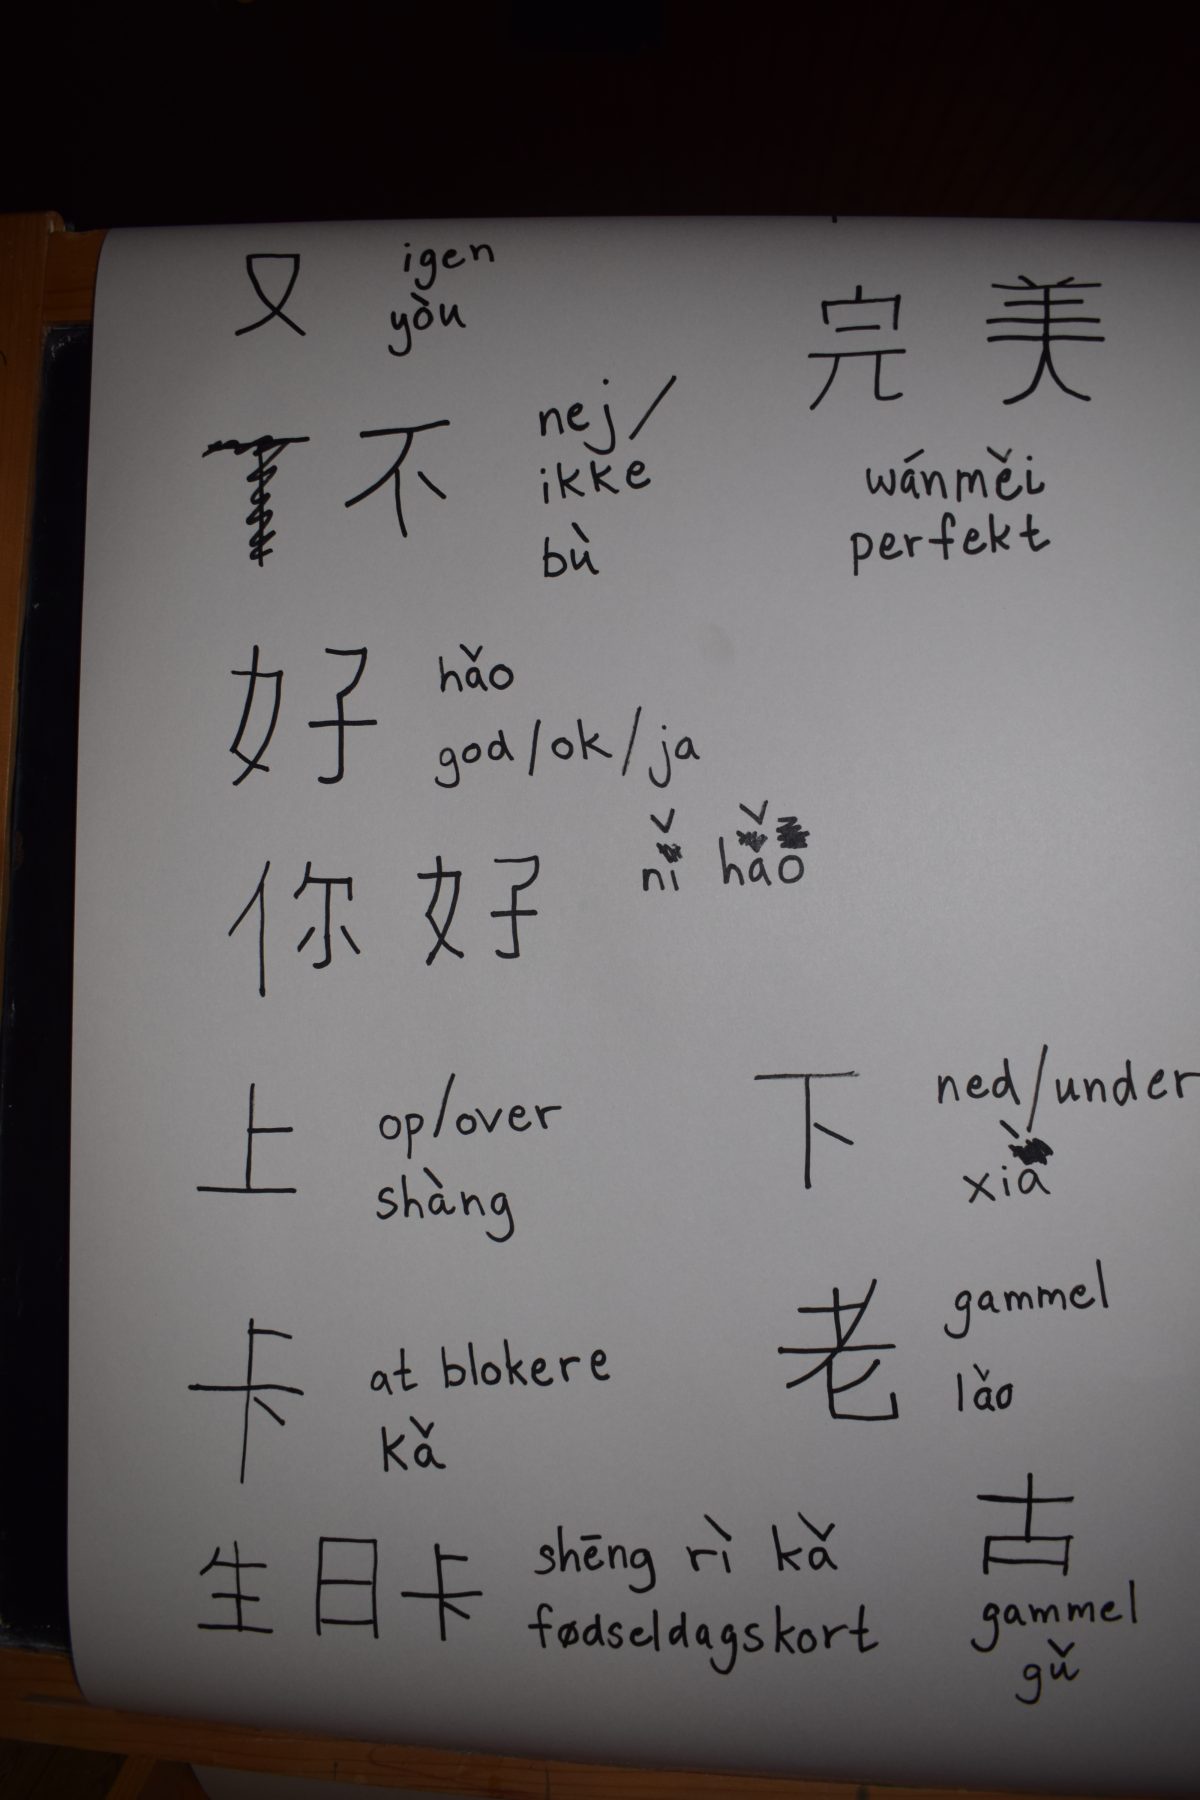 又 igen
yòu
完美
wánměi
perfekt
不 nej/
ikke
bù
好 hǎo
god/ok/ja
你好 nǐ hǎo
上 op/over
shàng
下 ned/under
xià
卡 at blokere
kǎ
老 gammel
lǎo
生日卡 shēng rì kǎ
fødseldagskort
古
gammel
gǔ